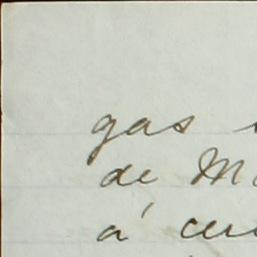 gas
de M
á cer